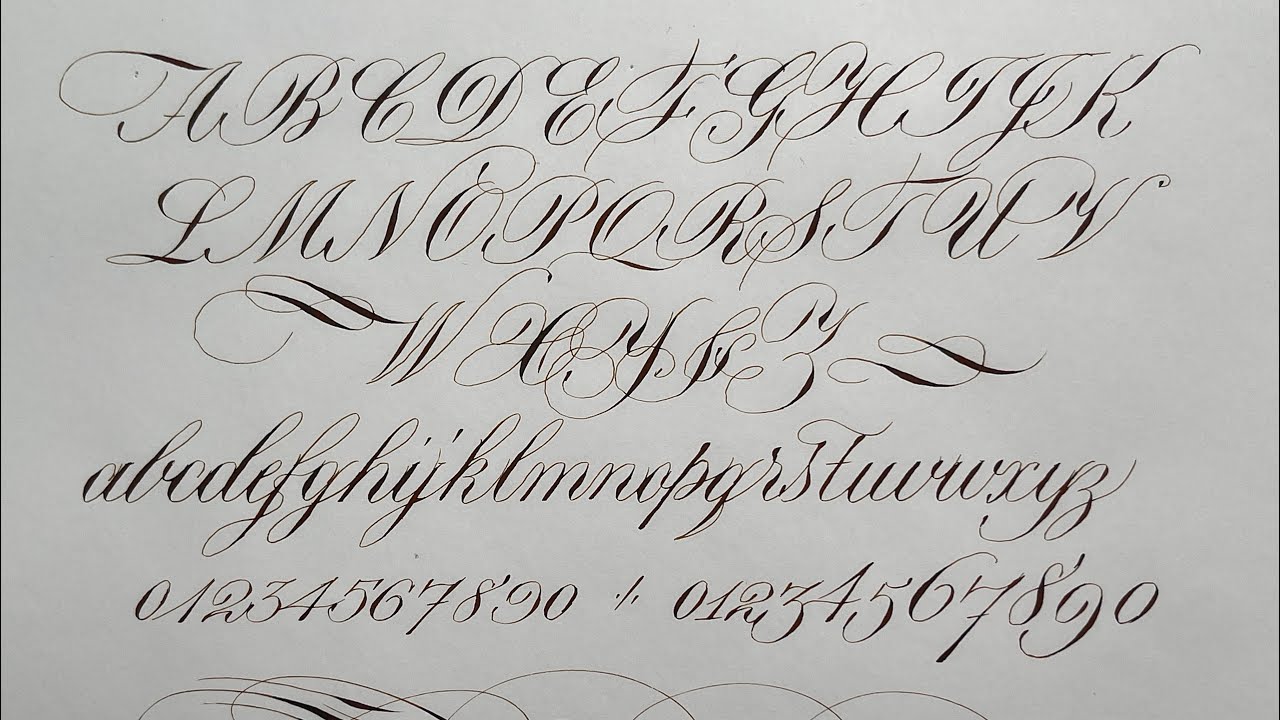 ABCDEFGHIJK
LMNOPQRSTUV
WXY&Z
abcdefghijklmnopqrstuvwxyz
01234567890 ·/· 01234567890